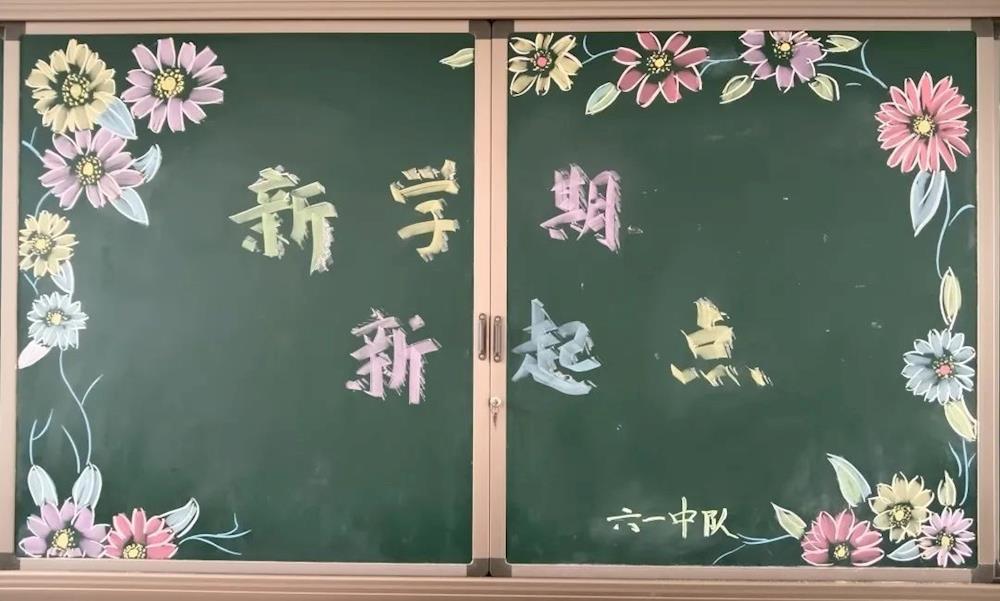 新学期
新起点
六一中队